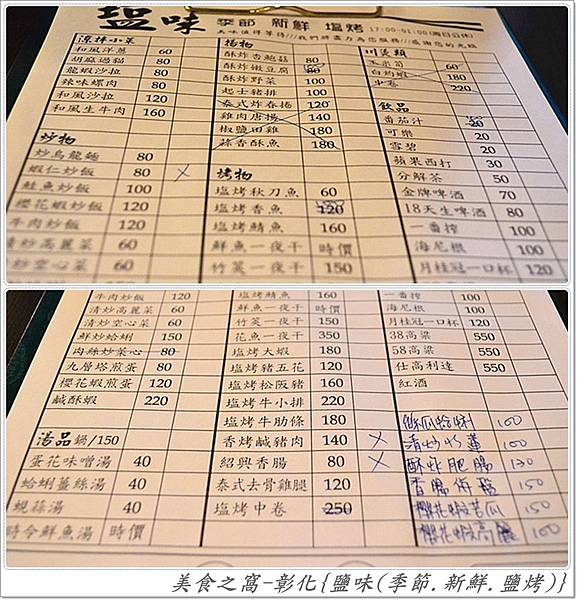 塩味 季節 新鮮 塩烤 17:00~01:00(週日公休)
涼拌小菜
和風洋蔥 60
胡麻過貓 80
龍蝦沙拉 80
辣味螺肉 80
和風沙拉 120
和風生牛肉 160
炒物
炒烏龍麵 80
蝦仁炒飯 80 ×
鮭魚炒飯 100
櫻花蝦炒飯 120
牛肉炒飯 120
清炒高麗菜 60
炒空心菜 60
揚物
酥炸杏鮑菇 80
酥炸嫩豆腐
酥炸野菜 100
起士豬排 100
泰式炸春捲 120
雞肉唐揚 140
椒鹽田雞 180
蒜香酥魚 180
烤物
塩烤秋刀魚 60
塩烤香魚 120
塩烤鯖魚 160
鮮魚一夜干 時價
竹筴一夜干 150
川燙類
白灼蝦 180
中卷 220
飲品
番茄汁 20
可樂 20
雪碧 20
蘋果西打 30
分解茶 50
金牌啤酒 70
18天生啤酒 80
一番搾 100
海尼根 100
月桂冠一口杯 120
牛肉炒飯 120
清炒高麗菜 60
清炒空心菜 60
鮮炒蛤蜊 150
肉絲炒菜心 80
九層塔煎蛋 80
櫻花蝦煎蛋 120
鹹酥蝦 220
湯品 鍋/150
蛋花味噌湯 40
蛤蜊薑絲湯 40
蜆蒜湯 40
時令鮮魚湯 時價
塩烤鯖魚 160
鮮魚一夜干 時價
竹筴一夜干 150
花魚一夜干 350
塩烤大蝦 180
塩烤豬五花 120
塩烤松阪豬 160
塩烤牛小排 220
塩烤牛肋條 180
香烤鹹豬肉 140 ×
紹興香腸 80 ×
泰式去骨雞腿 120
塩烤中卷 250
一番搾 100
海尼根 100
月桂冠一口杯 120
38高粱 550
58高粱 550
仕高利達 550
紅酒
絲瓜蛤蜊 100
清炒水蓮 100
酥炸肥腸 130
150
櫻花蝦苦瓜 150
櫻花蝦高麗 100
美食之窩-彰化{鹽味(季節.新鮮.鹽烤)}